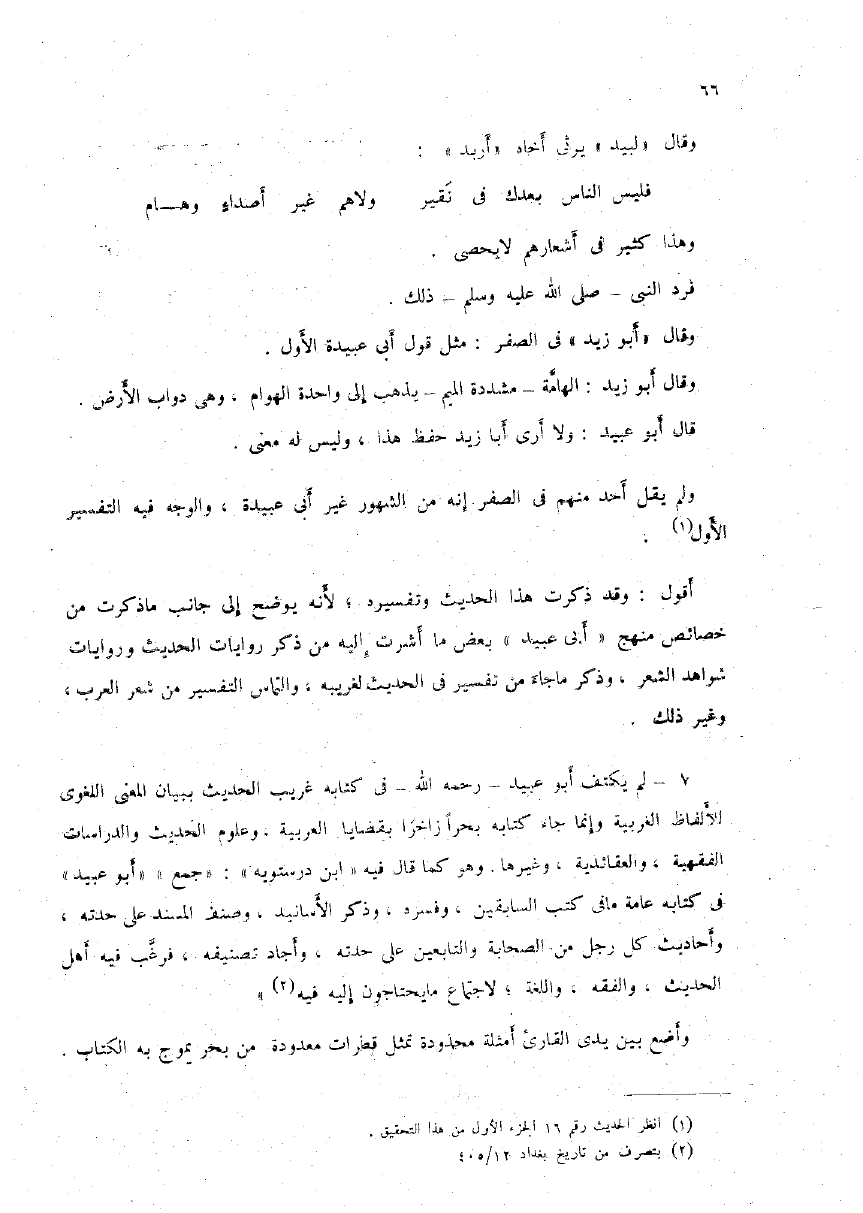 ٦٦
وقال «لبيد» يرثى أخاه «أربد» :
فليس الناس بعدك فى نَقير ولاهم غير أصداءٍ وهـــام
وهذا كثير فى أشعارهم لايحصى .
فرد النبى – صلى الله عليه وسلم – ذلك .
وقال «أبو زيد» فى الصفر : مثل قول أبى عبيدة الأول .
وقال أبو زيد : الهامَّة – مشددة الميم – يذهب إلى واحدة الهوام ، وهى دواب الأرض .
قال أبو عبيد : ولا أرى أبا زيد حفظ هذا ، وليس له معنى .
ولم يقل أحد منهم فى الصفر إنه من الشهور غير أبى عبيدة ، والوجه فيه التفسير
الأول(١) .
أقول : وقد ذكرت هذا الحديث وتفسيره ؛ لأنه يوضح إلى جانب ماذكرت من
خصائص منهج «أبى عبيد» بعض ما أشرت إليه من ذكر روايات الحديث وروايات
شواهد الشعر ، وذكر ماجاء من تفسير فى الحديث لغريبه ، والتماس التفسير من شعر العرب ،
وغير ذلك .
٧ – لم يكتف أبو عبيد – رحمه الله – فى كتابه غريب الحديث ببيان المعنى اللغوى
للألفاظ الغريبة وإنما جاء كتابه بحراً زاخرًا بقضايا العربية ، وعلوم الحديث والدراسات
الفقهية ، والعقائدية ، وغيرها . وهو كما قال فيه «ابن درستويه» : «جمع» «أبو عبيد»
فى كتابه عامة مافى كتب السابقين ، وفسره ، وذكر الأسانيد ، وصنف المسند على حدته ،
وأحاديث كل رجل من الصحابة والتابعين على حدته ، وأجاد تصنيفه ، فرغَّب فيه أهل
الحديث ، والفقه ، واللغة ؛ لاجتماع مايحتاجون إليه فيه(٢)»
وأضع بين يدى القارئ أمثلة محدودة تمثل قطرات معدودة من بحر يموج به الكتاب .
(١) انظر الحديث رقم ١٦ الجزء الأول من هذا التحقيق .
(٢) بتصرف من تاريخ بغداد ٤٠٥/١٢